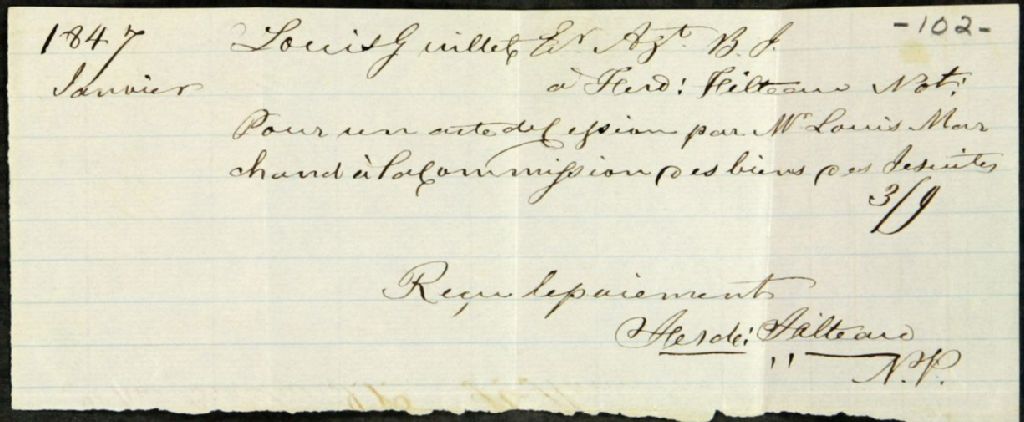 -102-
1847 Louis Guillet Er Agt. B. J.
Janvier à Ferd: Filteau Not:
Pour un acte de Cession par Mr Louis Mar
chand à la Commission des biens des Jesuites
3/9
Reçu le paiement
Ferde: Filteau
N.P.